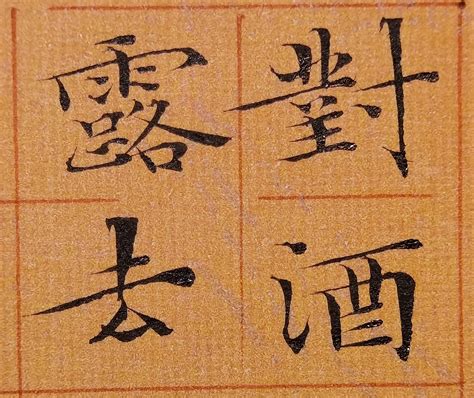 對酒
露去